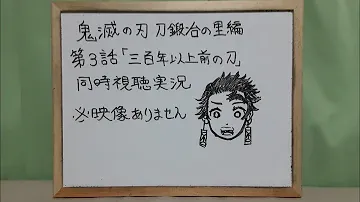 鬼滅の刃 刀鍛冶の里編
第3話「三百年以上前の刀」
同時視聴実況
※映像ありません